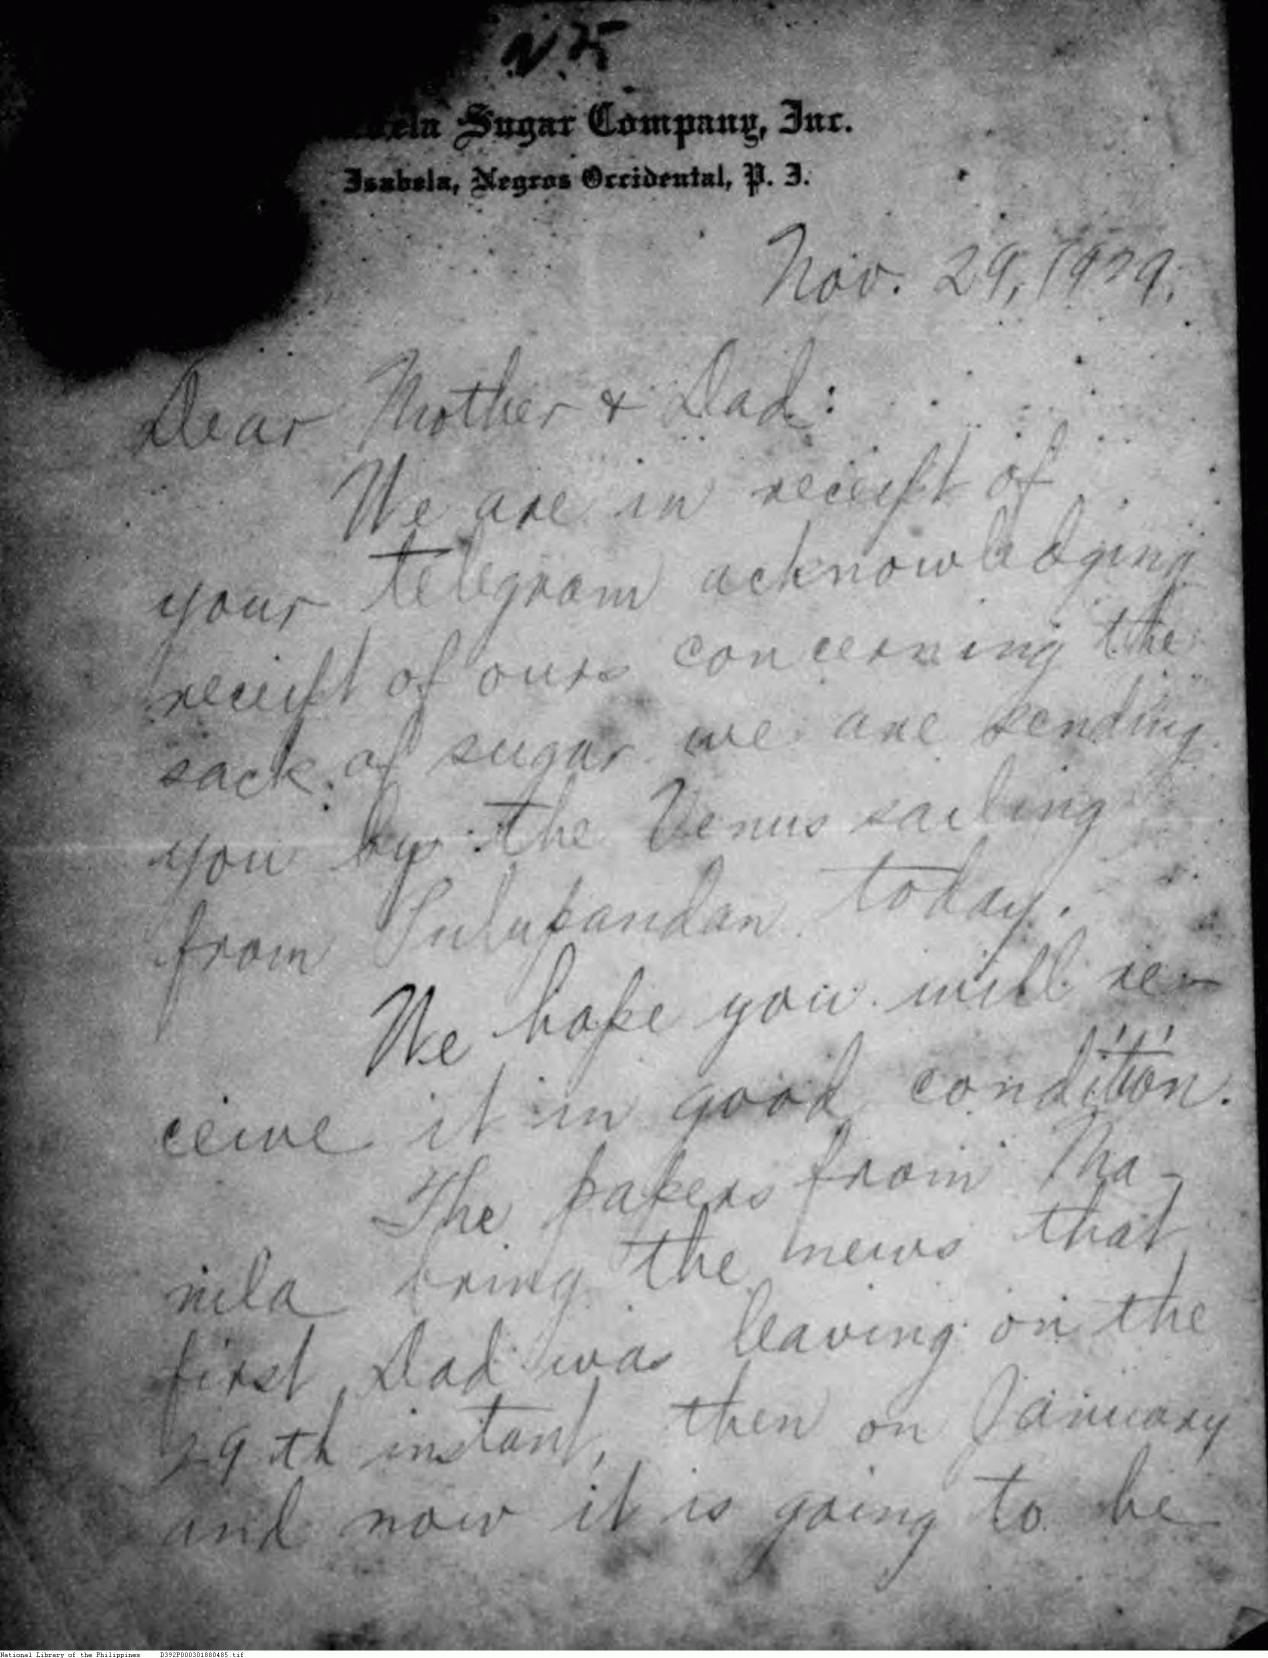 Sugar Company, Inc.
Isabela, Negros Occidental, P. I.
Nov. 29, 1929.
Dear Mother & Dad:
We are in receipt of
your telegram acknowledging
receipt of ours concerning the
sack of sugar we are sending
you by the Venus sailing
from Pulupandan today.
We hope you will re-
ceive it in good condition.
The papers from Ma-
nila bring the news that
first Dad was leaving on the
29th instant, then on January
and now it is going to be
National Library of the Philippines D392P000301880485.tif